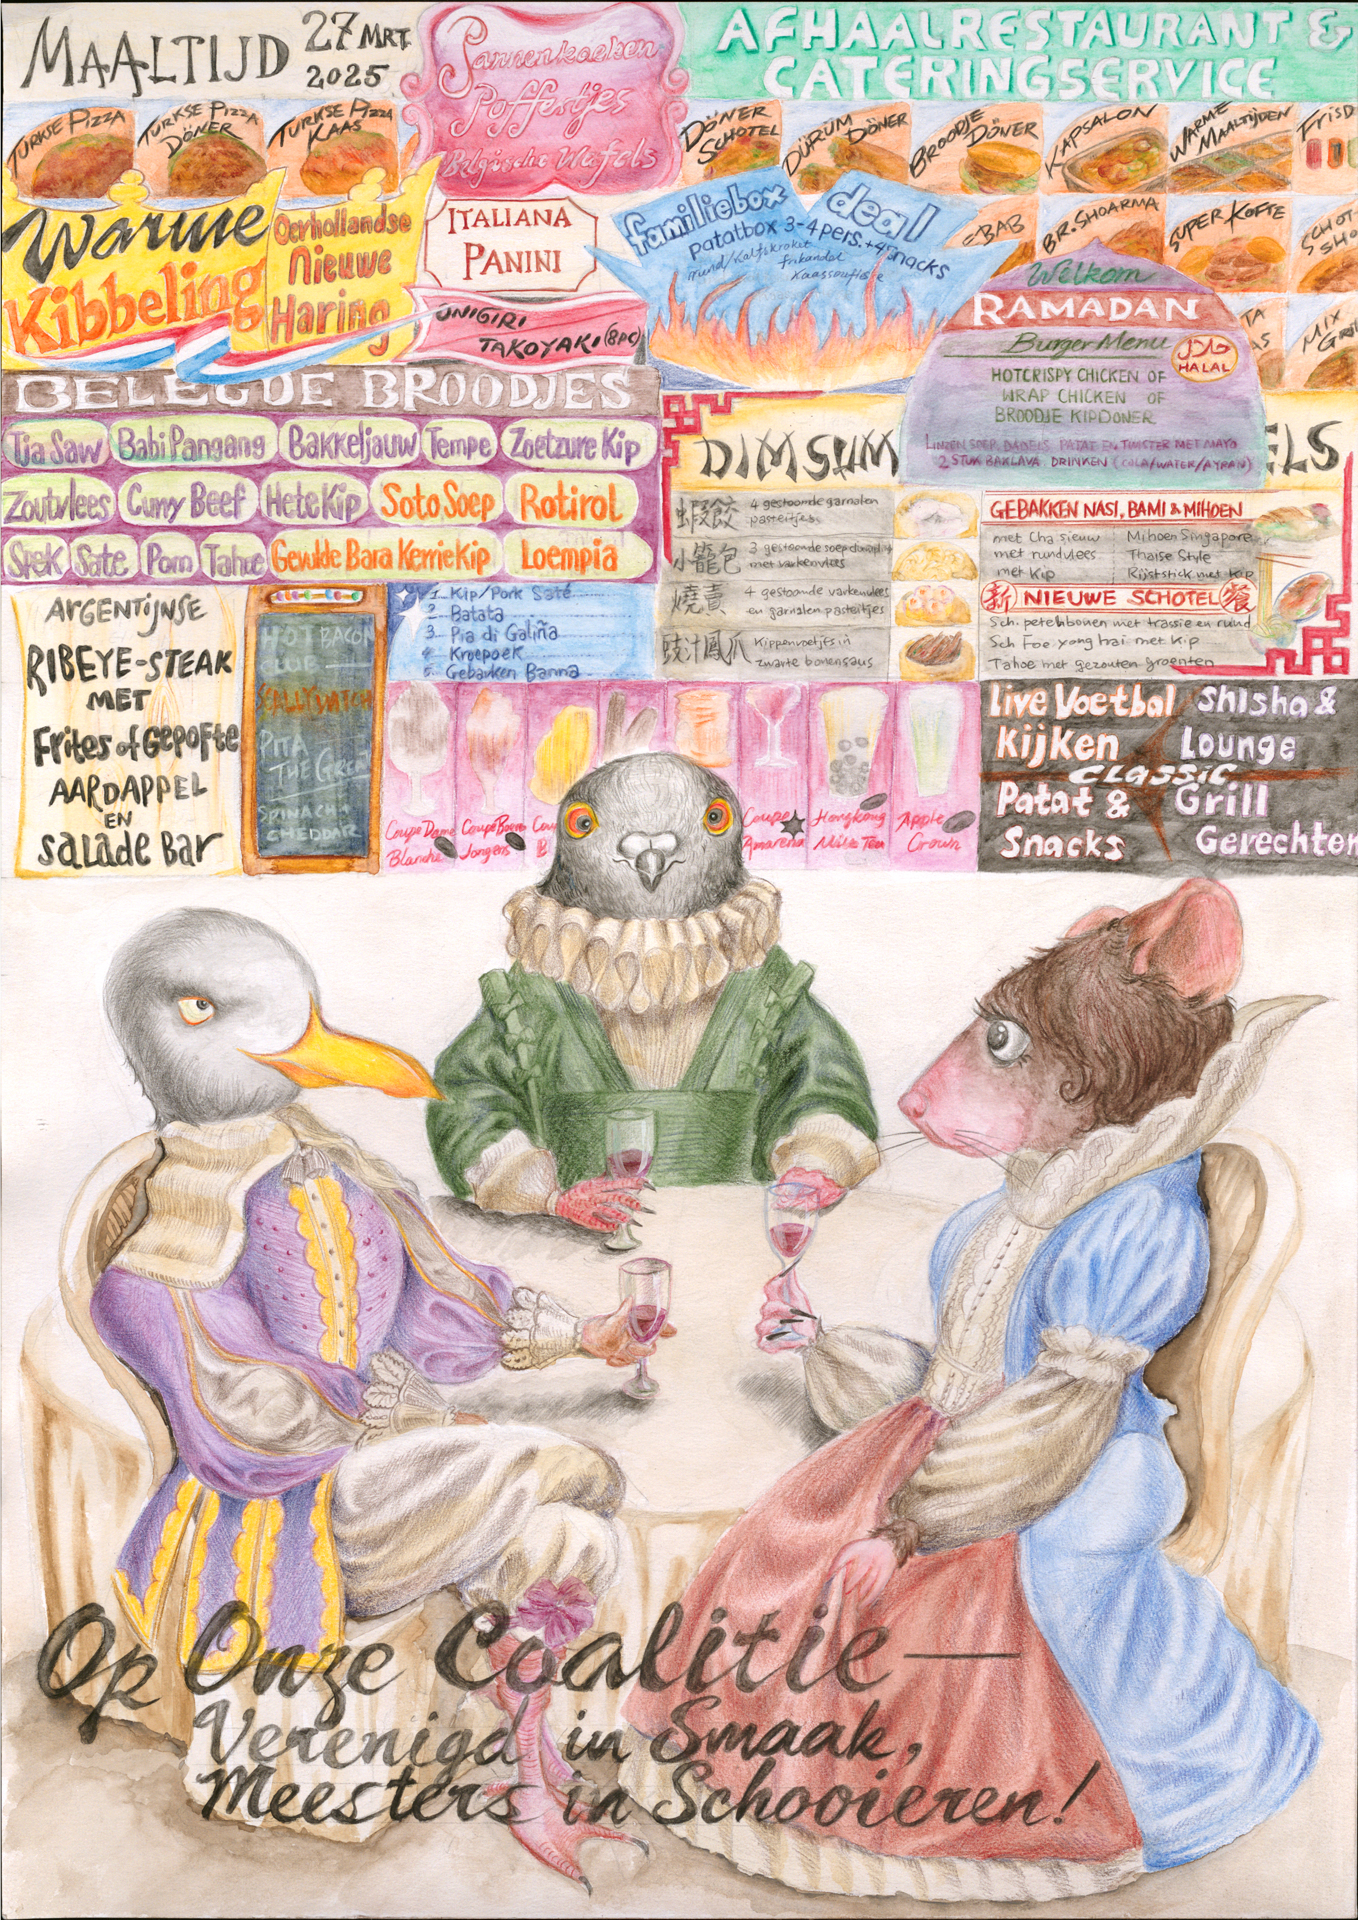 MAALTIJD 27 MRT.
2025
Pannenkoeken
Poffertjes
Belgische Wafels
AFHAALRESTAURANT &
CATERINGSERVICE
TURKSE PIZZA
TURKSE PIZZA
DÖNER
TURKSE PIZZA
KAAS
DÖNER
SCHOTEL
DÜRÜM
DÖNER
BROODJE
DÖNER
KAPSALON
WARME
MAALTIJDEN
FRISD
Warme
Kibbeling
Oerhollandse
Nieuwe
Haring
ITALIANA
PANINI
ONIGIRI
TAKOYAKI (8PC)
familiebox
deal
patatbox 3-4 pers. + 4 snacks
rund/kalfskroket
frikandel
kaassouflisse
EBAB
BR. SHOARMA
SUPER KOFTE
SCHOT-
SHO
TA
AS
MIX
GRILL
Welkom
RAMADAN
Burger Menu
حلال
HALAL
HOTCRISPY CHICKEN OF
WRAP CHICKEN OF
BROODJE KIPDONER
LINZEN SOEP, DADELS, PATAT EN TWISTER MET MAYO
2 STUK BAKLAVA DRINKEN (COLA/WATER/AYRAN)
BELEGDE BROODJES
Tja Saw
Babi Pangang
Bakkeljauw
Tempe
Zoetzure Kip
Zoutvlees
Curry Beef
Hete Kip
Soto Soep
Rotirol
Spek
Sate
Pom
Tahoe
Gevulde Bara Kerrie Kip
Loempia
DIMSUM
ELS
蝦餃
4 gestoomde garnalen
pasteitjes.
小籠包
3 gestoomde soep dumpling
met varkenvlees
燒賣
4 gestoomde varkenvlees
en garnalen pasteitjes
豉汁鳳爪
Kippenvoetjes in
zwarte bonensaus
GEBAKKEN NASI, BAMI & MIHOEN
met Cha sieuw
met rundvlees
met Kip
Mihoen Singapore
Thaise Style
Rijststick met Kip
新 NIEUWE SCHOTEL 餐
Sch. petehbonen met trassie en rund
Sch Foe yong hai met Kip
Tahoe met gezouten groenten
ARGENTIJNSE
RIBEYE-STEAK
MET
Frites of Gepofte
AARDAPPEL
EN
Salade Bar
HOT BACON
CLUB
PITA
THE GREEN
SPINACH
CHEDDAR
1. Kip/Pork Saté
2. Batata
3. Pia di Galiña
4. Kroepoek
5. Gebakken Banna
Coupe Dame
Blanche
Coupe Boeren
Jongens
Cou
B
Coupe
Amarena
Hongkong
Milk Tea
Apple
Crown
Live Voetbal
Kijken
Shisha &
Lounge
CLASSIC
Patat &
Snacks
Grill
Gerechten
Op Onze Coalitie —
Verenigd in Smaak,
Meesters in Schooieren!